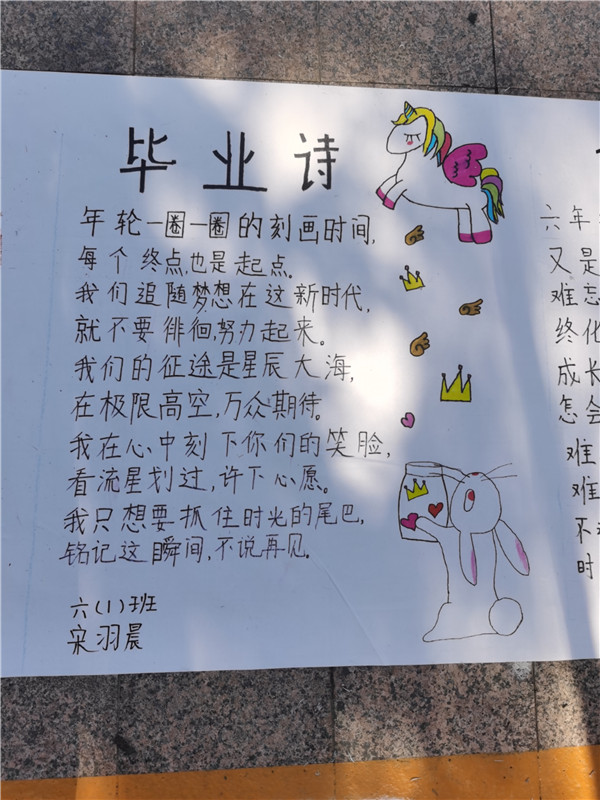 毕业诗
年轮一圈一圈的刻画时间,
每个终点,也是起点。
我们追随梦想在这新时代,
就不要徘徊,努力起来。
我们的征途是星辰大海,
在极限高空,万众期待。
我在心中刻下你们的笑脸,
看流星划过,许下心愿。
我只想要抓住时光的尾巴,
铭记这瞬间,不说再见。
六(1)班
宋羽晨
六年
又是
难忘
终化
成长
怎会
难
难
不
时